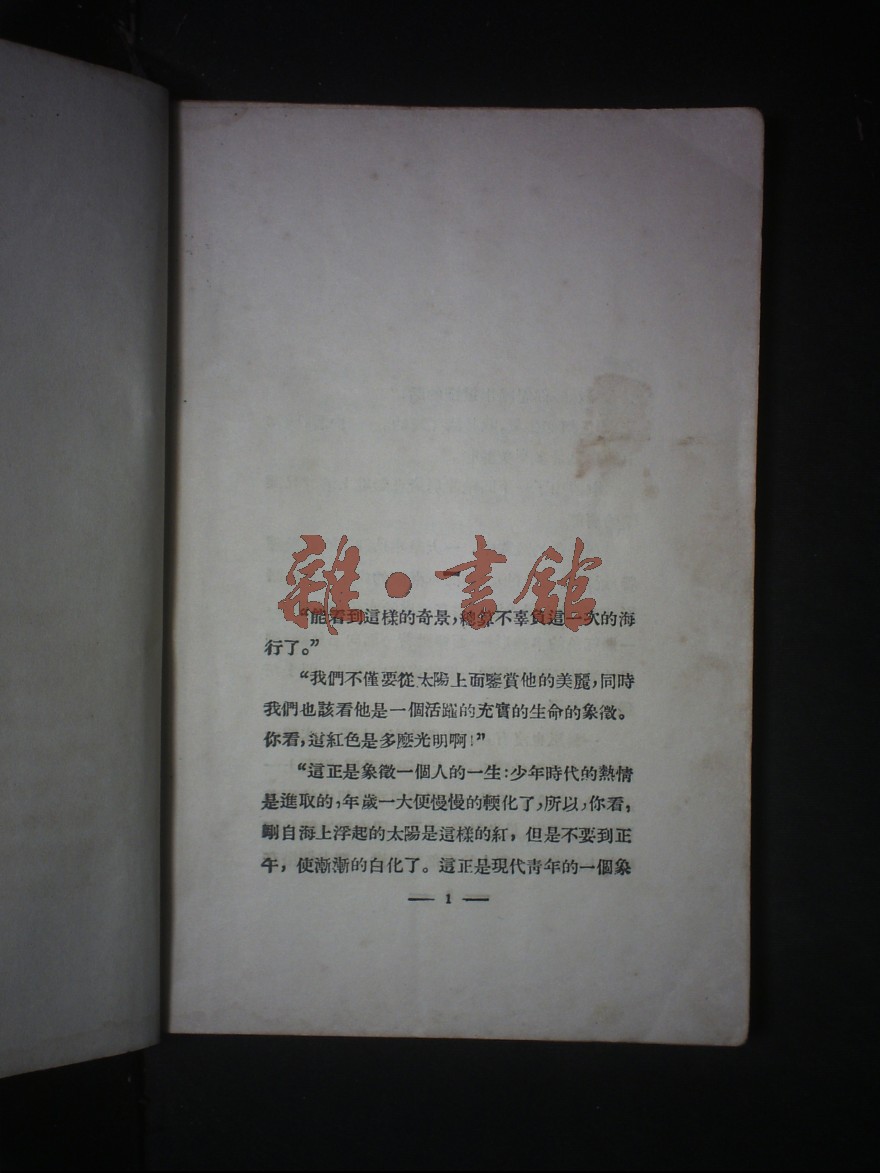 一
雜·書館
“能看到這樣的奇景,總算不辜負這一次的海
行了。”
“我們不僅要從太陽上面鑒賞他的美麗,同時
我們也該看他是一個活躍的充實的生命的象徵。
你看,這紅色是多麼光明啊!”
“這正是象徵一個人的一生:少年時代的熱情
是進取的,年歲一大便慢慢的輭化了,所以,你看,
剛自海上浮起的太陽是這樣的紅,但是不要到正
午,使漸漸的白化了。這正是現代青年的一個象
— 1 —